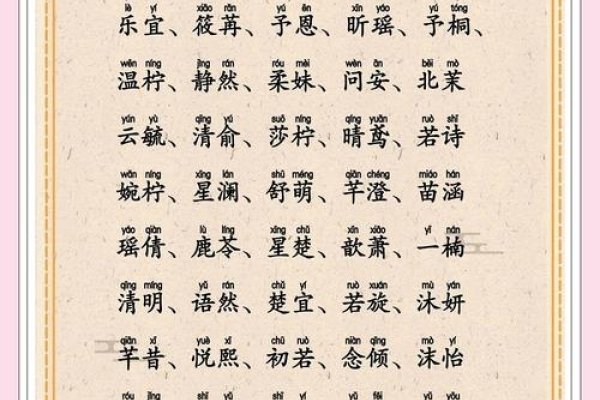 lè yí xiǎo rǎn yú ēn xīn yáo yú tóng
乐宜、筱苒、予恩、昕瑶、予桐、
wēn níng jìng rán róu mèi wèn ān běi mò
温柠、静然、柔妹、问安、北茉
yún yù qīng yú suō níng qíng yuān ruò shī
云毓、清俞、莎柠、晴鸢、若诗
wǎn níng xīng lán shū méng qiān chéng miáo hán
婉柠、星澜、舒萌、芊澄、苗涵
yáo qiàn lù líng xīng chǔ xīn xiāo yī nán
瑶倩、鹿苓、星楚、歆萧、一楠
qīng míng yǔ rán chǔ yí ruò xuán mù yán
清明、语然、楚宜、若旋、沐妍
qiān xī yuè xī chū ruò niàn qīng mò yí
芊昔、悦熙、初若、念倾、沫怡